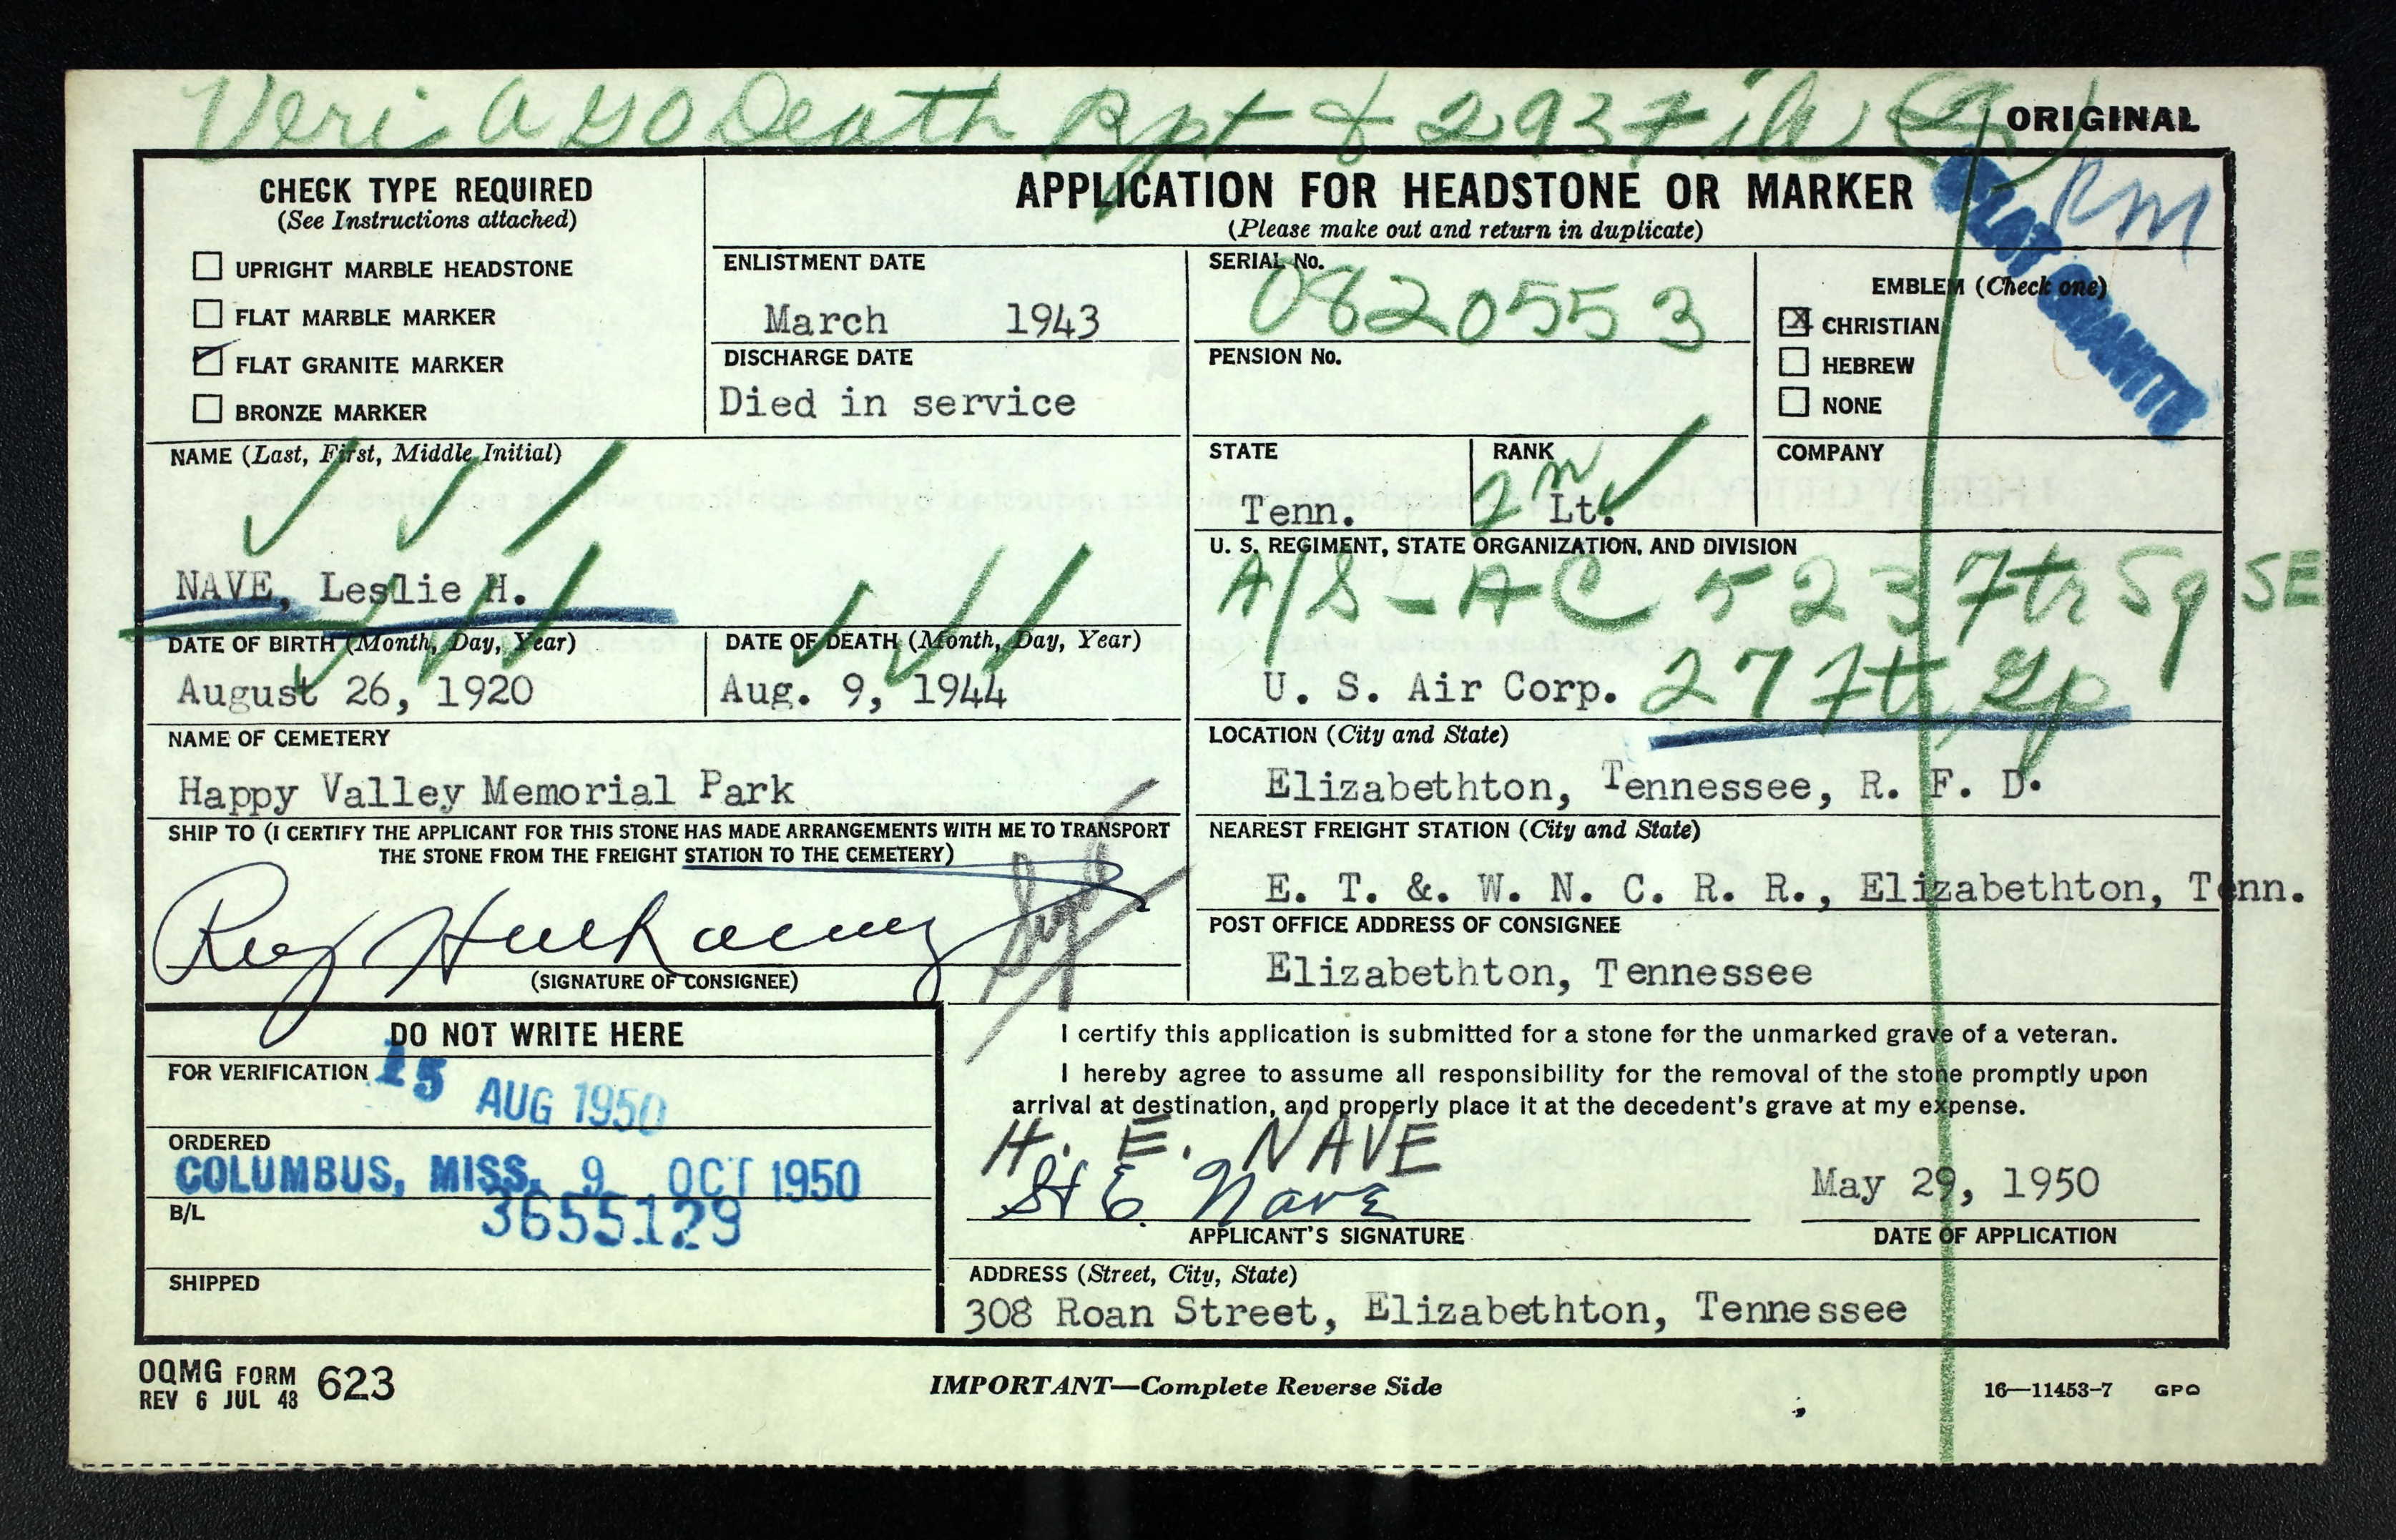 Veri. AGO Death Rpt & 293 File
ORIGINAL
CHECK TYPE REQUIRED
(See Instructions attached)
UPRIGHT MARBLE HEADSTONE
FLAT MARBLE MARKER
FLAT GRANITE MARKER
BRONZE MARKER
APPLICATION FOR HEADSTONE OR MARKER
(Please make out and return in duplicate)
RM
FLAT GRANITE
ENLISTMENT DATE
March 1943
DISCHARGE DATE
Died in service
SERIAL No.
0820553
PENSION No.
EMBLEM (Check one)
CHRISTIAN
HEBREW
NONE
NAME (Last, First, Middle Initial)
NAVE, Leslie H.
STATE
Tenn.
RANK
2nd Lt.
COMPANY
U. S. REGIMENT, STATE ORGANIZATION, AND DIVISION
A/S - AC 523 Ftr Sq SE
U. S. Air Corp. 27 Ftr Gp
DATE OF BIRTH (Month, Day, Year)
August 26, 1920
DATE OF DEATH (Month, Day, Year)
Aug. 9, 1944
NAME OF CEMETERY
Happy Valley Memorial Park
LOCATION (City and State)
Elizabethton, Tennessee, R. F. D.
SHIP TO (I CERTIFY THE APPLICANT FOR THIS STONE HAS MADE ARRANGEMENTS WITH ME TO TRANSPORT
THE STONE FROM THE FREIGHT STATION TO THE CEMETERY)
(SIGNATURE OF CONSIGNEE)
NEAREST FREIGHT STATION (City and State)
E. T. &. W. N. C. R. R., Elizabethton, Tenn.
POST OFFICE ADDRESS OF CONSIGNEE
Elizabethton, Tennessee
DO NOT WRITE HERE
FOR VERIFICATION
15 AUG 1950
ORDERED
COLUMBUS, MISS. 9 OCT 1950
B/L
3655129
SHIPPED
I certify this application is submitted for a stone for the unmarked grave of a veteran.
I hereby agree to assume all responsibility for the removal of the stone promptly upon
arrival at destination, and properly place it at the decedent's grave at my expense.
H. E. NAVE
H E. Nave
APPLICANT'S SIGNATURE
May 29, 1950
DATE OF APPLICATION
ADDRESS (Street, City, State)
308 Roan Street, Elizabethton, Tennessee
OQMG FORM 623
REV 6 JUL 48
IMPORTANT—Complete Reverse Side
16—11453-7 GPO